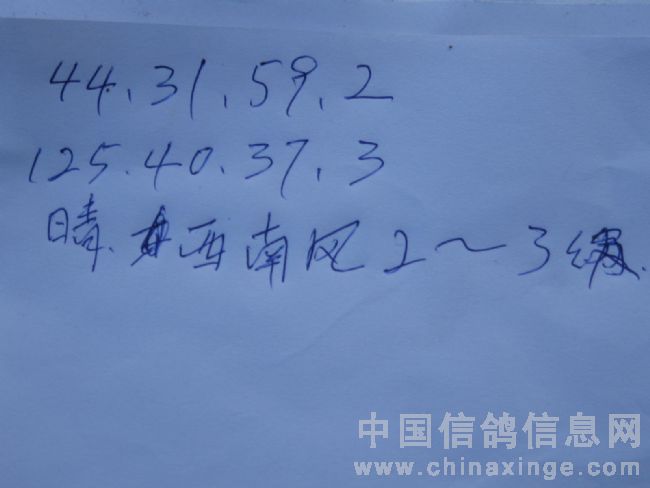 44.31.59.2
125.40.37.3
晴.西南风2~3级.
中国信鸽信息网
www.chinaxinge.com